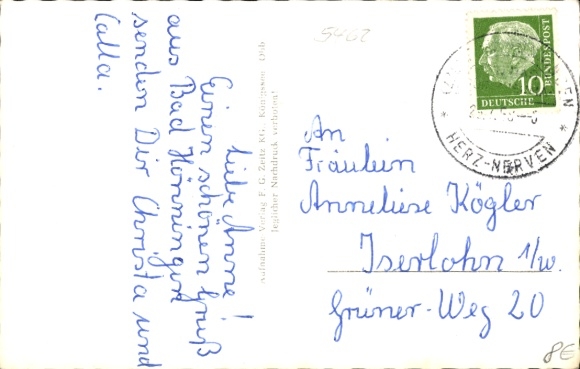 Liebe Anne!
Einen schönen Gruß
aus Bad Hönningen
senden Dir Christa und
Calla.
Aufnahme Verlag F. G. Zeitz KG., Königssee
jeglicher Nachdruck verboten!
5462
An
Fräulein
Anneliese Kögler
Iserlohn i/w.
Grüner-Weg 20
10
DEUTSCHE
BUNDESPOST
* HERZ-NERVEN *
8E